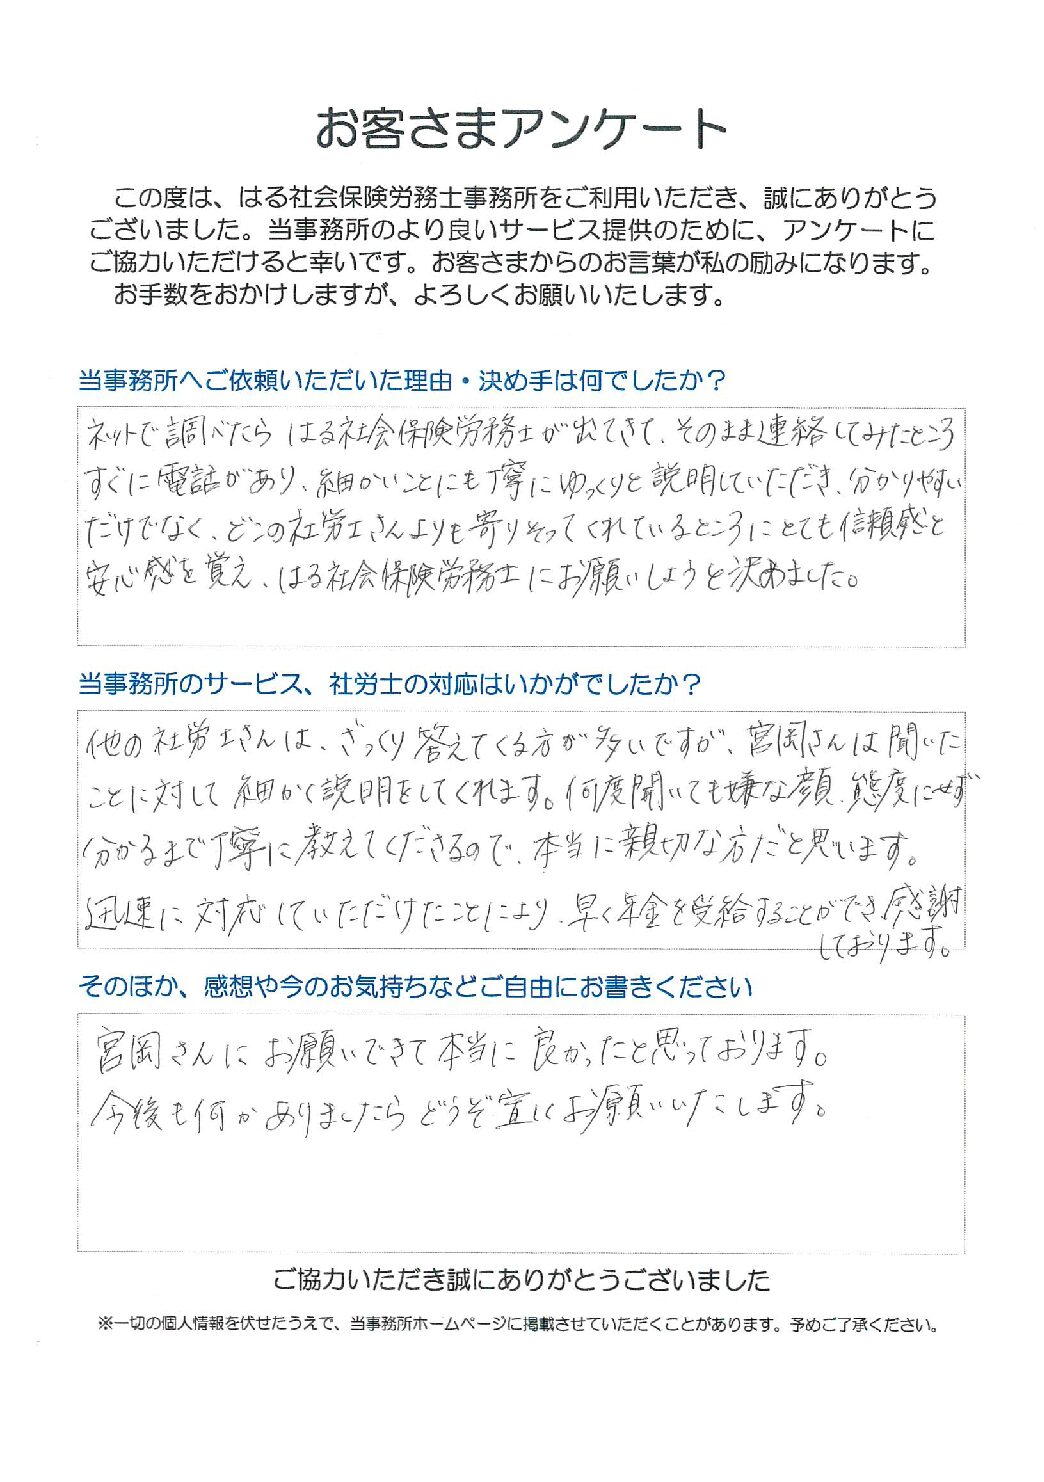 お客さまアンケート
この度は、はる社会保険労務士事務所をご利用いただき、誠にありがとう
ございました。当事務所のより良いサービス提供のために、アンケートに
ご協力いただけると幸いです。お客さまからのお言葉が私の励みになります。
お手数をおかけしますが、よろしくお願いいたします。
当事務所へご依頼いただいた理由・決め手は何でしたか？
ネットで調べたら はる社会保険労務士が出てきて、そのまま連絡してみたところ
すぐに電話があり、細かいことにも丁寧にゆっくりと説明していただき、分かりやすい
だけでなく、どこの社労士さんよりも寄りそってくれているところにとても信頼感と
安心感を覚え、はる社会保険労務士にお願いしようと決めました。
当事務所のサービス、社労士の対応はいかがでしたか？
他の社労士さんは、ざっくり答えてくる方が多いですが、宮岡さんは聞いた
ことに対して細かく説明をしてくれます。何度聞いても嫌な顔、態度にせず
分かるまで丁寧に教えてくださるので、本当に親切な方だと思います。
迅速に対応していただけたことにより、早く年金を受給することができ感謝
しております。
そのほか、感想や今のお気持ちなどご自由にお書きください
宮岡さんにお願いできて本当に良かったと思っております。
今後も何かありましたらどうぞ宜しくお願いいたします。
ご協力いただき誠にありがとうございました
※一切の個人情報を伏せたうえで、当事務所ホームページに掲載させていただくことがあります。予めご了承ください。